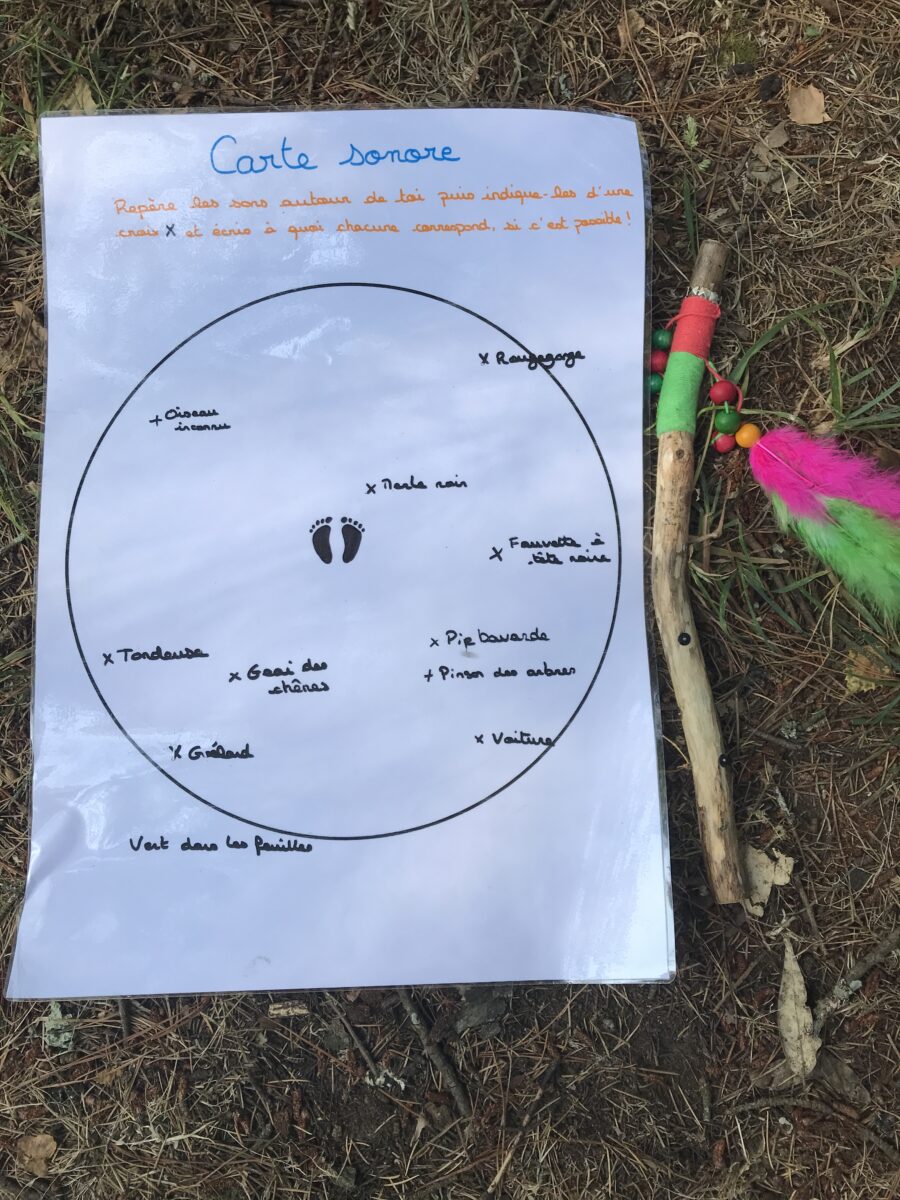 Carte sonore
Repère les sons autour de toi puis indique-les d'une
croix x et écris à quoi chacune correspond, si c'est possible !
x Rougegorge
+ Oiseau
inconnu
x Merle noir
x Fauvette à
tête noire
x Tondeuse
x Pie bavarde
x Geai des
chênes
+ Pinson des arbres
x Goéland
x Voiture
Vent dans les feuilles